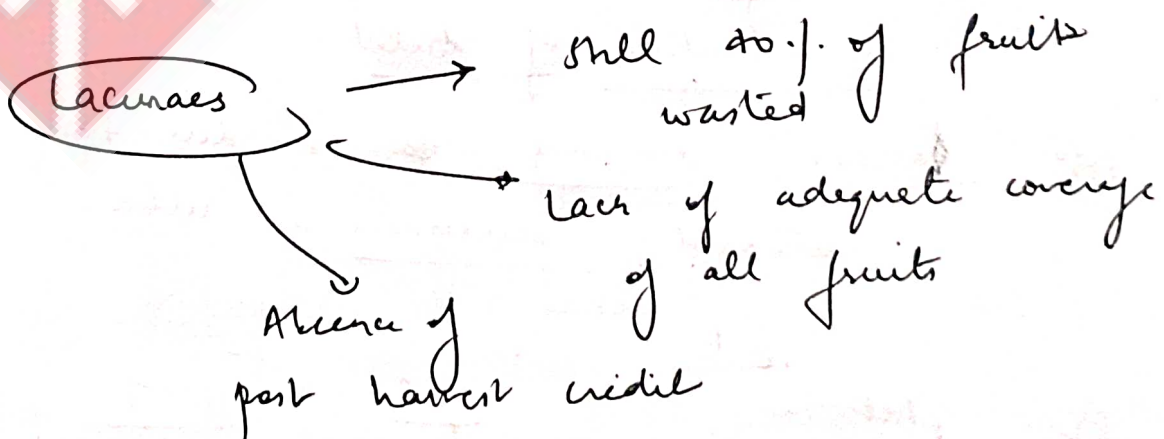 Lacunaes
Still 40 % of fruits
wasted
Lack of adequate coverage
of all fruits
Absence of
post harvest credit